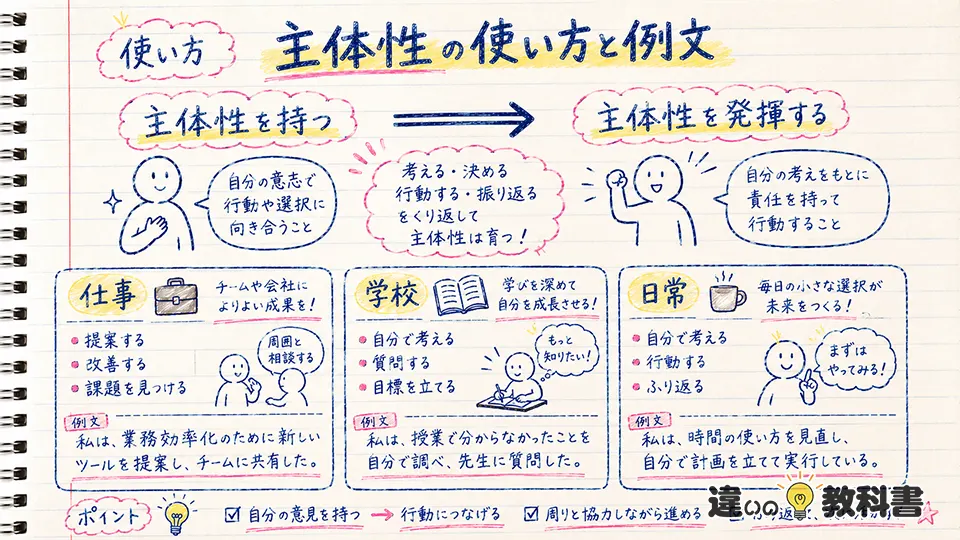 使い方
主体性の使い方と例文
主体性を持つ
主体性を発揮する
自分の意志で
行動や選択に
向き合うこと
考える・決める
行動する・振り返る
をくり返して
主体性は育つ！
自分の考えをもとに
責任を持って
行動すること
仕事
チームや会社に
よりよい成果を！
提案する
改善する
課題を見つける
周囲と
相談する
例文
私は、業務効率化のために新しい
ツールを提案し、チームに共有した。
学校
学びを深めて
自分を成長させる！
自分で考える
質問する
目標を立てる
もっと
知りたい！
例文
私は、授業で分からなかったことを
自分で調べ、先生に質問した。
日常
毎日の小さな選択が
未来をつくる！
自分で考える
行動する
ふり返る
まずは
やってみる！
例文
私は、時間の使い方を見直し、
自分で計画を立てて実行している。
ポイント
自分の意見を持つ → 行動につなげる
周りと協力しながら進める
違いの教科書